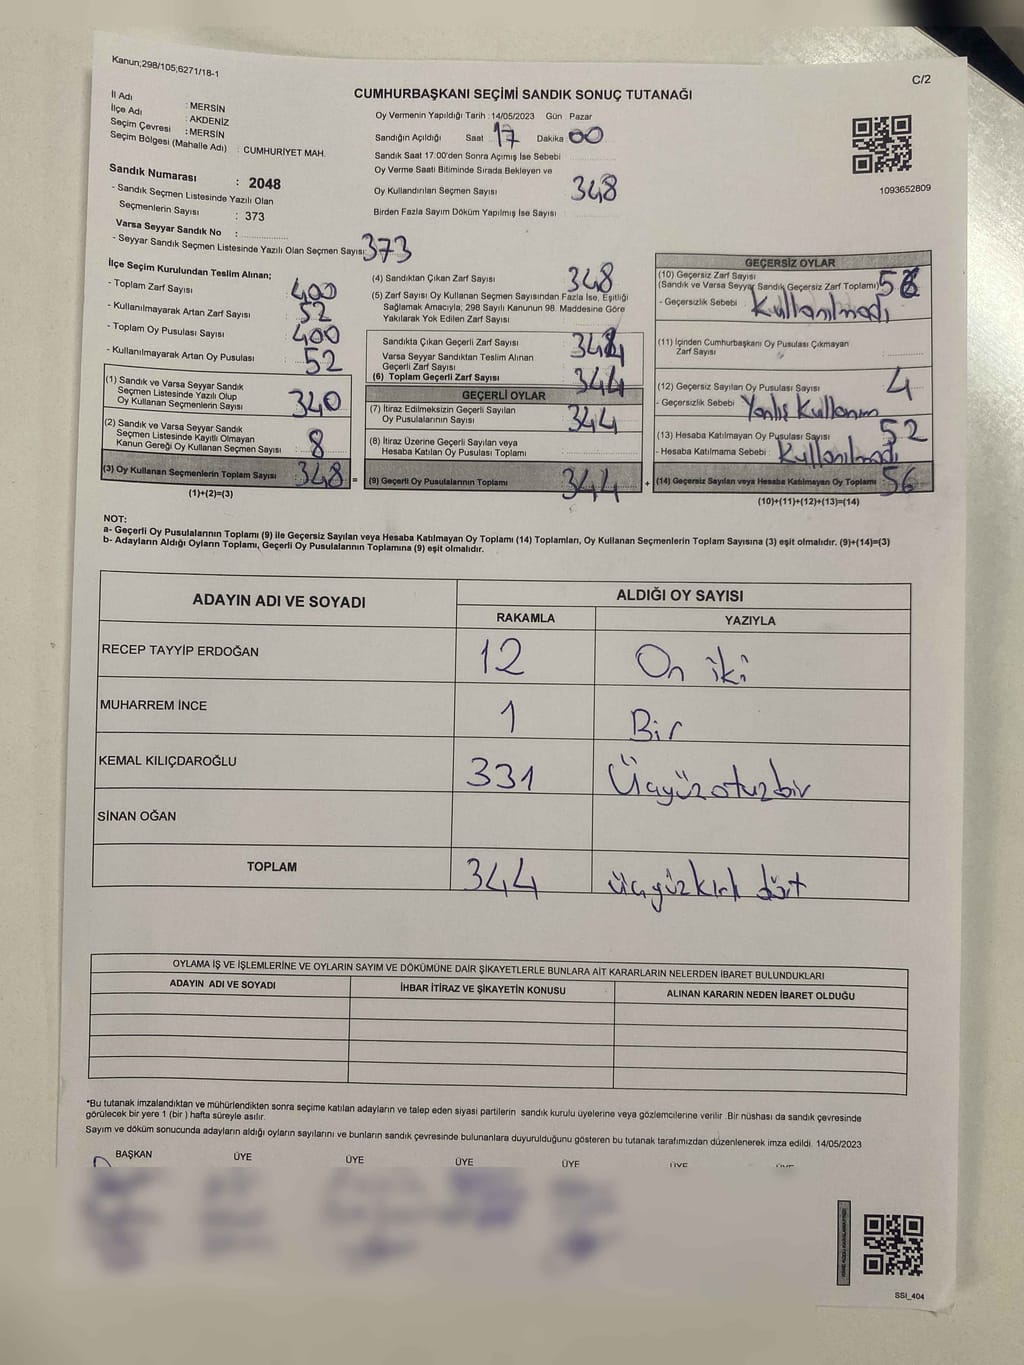 Kanun;298/105;6271/18-1
C/2
CUMHURBAŞKANI SEÇİMİ SANDIK SONUÇ TUTANAĞI
İl Adı : MERSİN
İlçe Adı : AKDENİZ
Seçim Çevresi : MERSİN
Seçim Bölgesi (Mahalle Adı) : CUMHURİYET MAH.
Sandık Numarası : 2048
- Sandık Seçmen Listesinde Yazılı Olan
Seçmenlerin Sayısı : 373
Varsa Seyyar Sandık No :
- Seyyar Sandık Seçmen Listesinde Yazılı Olan Seçmen Sayısı: 373
Oy Vermenin Yapıldığı Tarih : 14/05/2023 Gün Pazar
Sandığın Açıldığı Saat 17 Dakika 00
Sandık Saat 17:00'den Sonra Açımış İse Sebebi
Oy Verme Saati Bitiminde Sırada Bekleyen ve
Oy Kullandırılan Seçmen Sayısı 348
Birden Fazla Sayım Döküm Yapılmış İse Sayısı
1093652809
İlçe Seçim Kurulundan Teslim Alınan;
- Toplam Zarf Sayısı 400
- Kullanılmayarak Artan Zarf Sayısı 52
- Toplam Oy Pusulası Sayısı 400
- Kullanılmayarak Artan Oy Pusulası 52
(1) Sandık ve Varsa Seyyar Sandık
Seçmen Listesinde Yazılı Olup
Oy Kullanan Seçmenlerin Sayısı 340
(2) Sandık ve Varsa Seyyar Sandık
Seçmen Listesinde Kayıtlı Olmayan
Kanun Gereği Oy Kullanan Seçmen Sayısı 8
(3) Oy Kullanan Seçmenlerin Toplam Sayısı 348 =
(1)+(2)=(3)
(4) Sandıktan Çıkan Zarf Sayısı 348
(5) Zarf Sayısı Oy Kullanan Seçmen Sayısından Fazla İse, Eşitliği
Sağlamak Amacıyla, 298 Sayılı Kanunun 98. Maddesine Göre
Yakılarak Yok Edilen Zarf Sayısı
Sandıkta Çıkan Geçerli Zarf Sayısı 344
Varsa Seyyar Sandıktan Teslim Alınan
Geçerli Zarf Sayısı
(6) Toplam Geçerli Zarf Sayısı 344
GEÇERLİ OYLAR
(7) İtiraz Edilmeksizin Geçerli Sayılan
Oy Pusulalarının Sayısı 344
(8) İtiraz Üzerine Geçerli Sayılan veya
Hesaba Katılan Oy Pusulası Toplamı
(9) Geçerli Oy Pusulalarının Toplamı 344 +
GEÇERSİZ OYLAR
(10) Geçersiz Zarf Sayısı
(Sandık ve Varsa Seyyar Sandık Geçersiz Zarf Toplamı)
- Geçersizlik Sebebi Kullanılmadı
(11) İçinden Cumhurbaşkanı Oy Pusulası Çıkmayan
Zarf Sayısı
(12) Geçersiz Sayılan Oy Pusulası Sayısı 4
- Geçersizlik Sebebi Yanlış Kullanım
(13) Hesaba Katılmayan Oy Pusulası Sayısı 52
- Hesaba Katılmama Sebebi Kullanılmadı
(14) Geçersiz Sayılan veya Hesaba Katılmayan Oy Toplamı 56
(10)+(11)+(12)+(13)=(14)
NOT:
a- Geçerli Oy Pusulalarının Toplamı (9) ile Geçersiz Sayılan veya Hesaba Katılmayan Oy Toplamı (14) Toplamları, Oy Kullanan Seçmenlerin Toplam Sayısına (3) eşit olmalıdır. (9)+(14)=(3)
b- Adayların Aldığı Oyların Toplamı, Geçerli Oy Pusulalarının Toplamına (9) eşit olmalıdır.
ADAYIN ADI VE SOYADI
ALDIĞI OY SAYISI
RAKAMLA YAZIYLA
RECEP TAYYİP ERDOĞAN 12 On iki
MUHARREM İNCE 1 Bir
KEMAL KILIÇDAROĞLU 331 Üçyüzotuzbir
SİNAN OĞAN
TOPLAM 344 üçyüzkırk dört
OYLAMA İŞ VE İŞLEMLERİNE VE OYLARIN SAYIM VE DÖKÜMÜNE DAİR ŞİKAYETLERLE BUNLARA AİT KARARLARIN NELERDEN İBARET BULUNDUKLARI
ADAYIN ADI VE SOYADI İHBAR İTİRAZ VE ŞİKAYETİN KONUSU ALINAN KARARIN NEDEN İBARET OLDUĞU
*Bu tutanak imzalandıktan ve mühürlendikten sonra seçime katılan adayların ve talep eden siyasi partilerin sandık kurulu üyelerine veya gözlemcilerine verilir. Bir nüshası da sandık çevresinde
görülecek bir yere 1 (bir) hafta süreyle asılır.
Sayım ve döküm sonucunda adayların aldığı oyların sayılarını ve bunların sandık çevresinde bulunanlara duyurulduğunu gösteren bu tutanak tarafımızdan düzenlenerek imza edildi. 14/05/2023
BAŞKAN ÜYE ÜYE ÜYE ÜYE ÜYE ÜYE
SSI_404